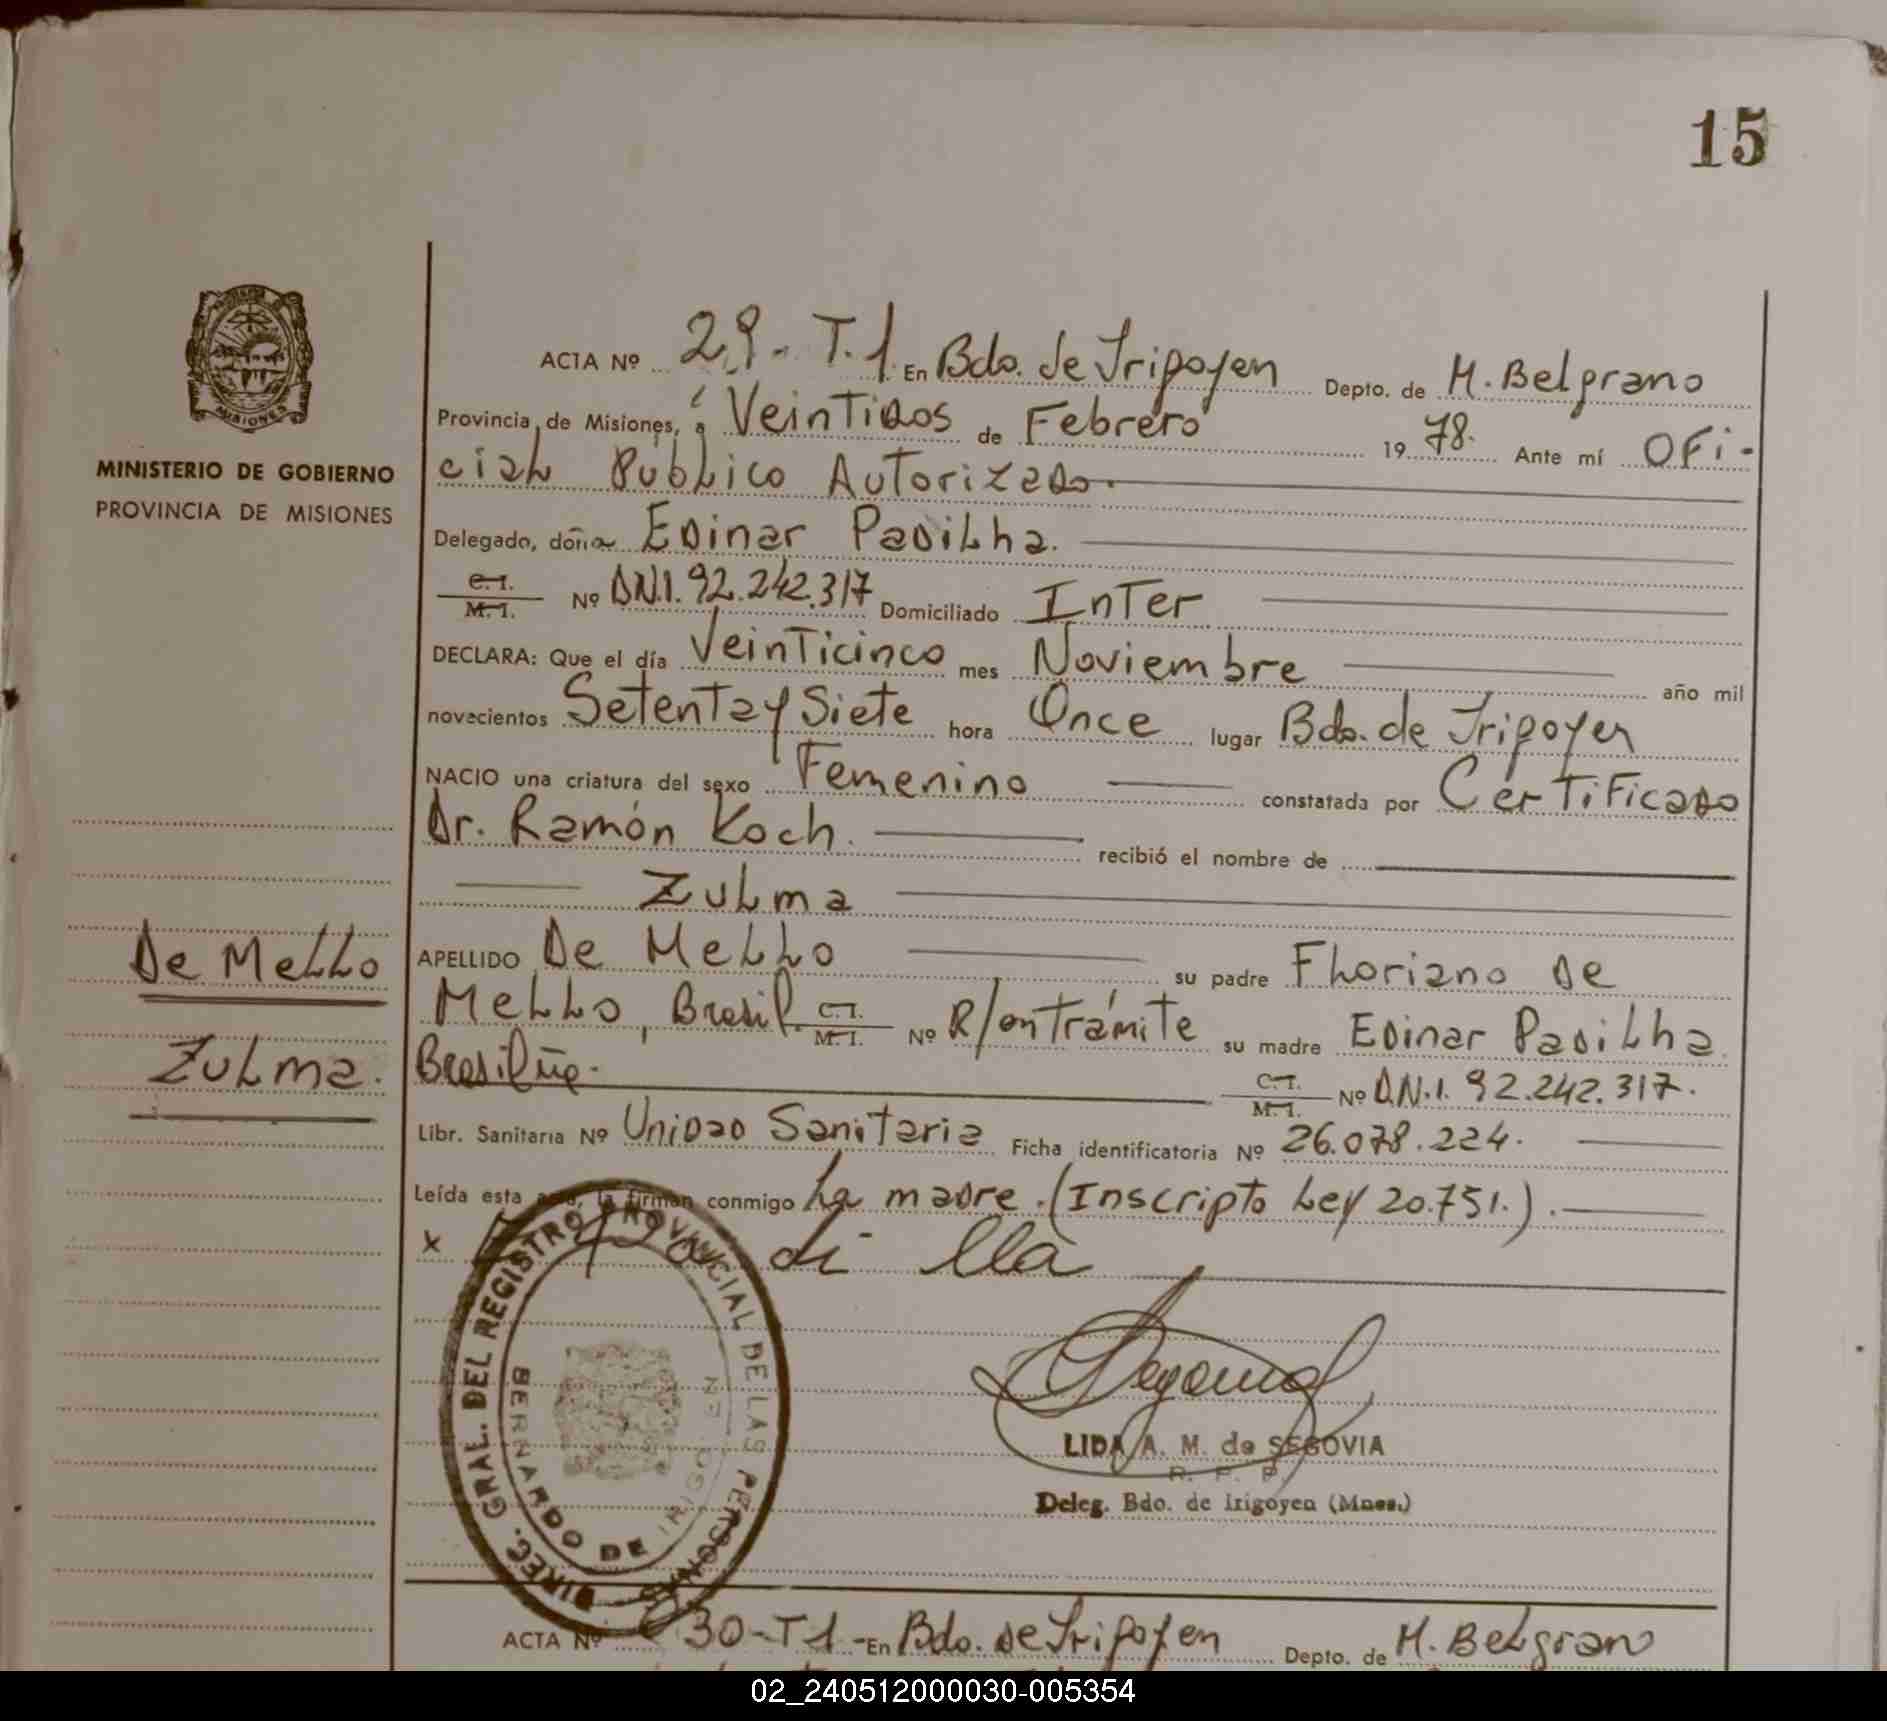 15
ACTA Nº 29-T.1 En Bdo. de Irigoyen Depto. de M. Belgrano
Provincia de Misiones, á Veintidos de Febrero 1978. Ante mí Ofi-
cial Público Autorizado.
MINISTERIO DE GOBIERNO
PROVINCIA DE MISIONES
MISIONES
Delegado, doña Edinar Padilha.
C.I. M.I. Nº D.N.I. 92.242.317 Domiciliado Inter
DECLARA: Que el día Veinticinco mes Noviembre año mil
novecientos Setenta y Siete hora Once lugar Bdo. de Irigoyen
NACIO una criatura del sexo Femenino constatada por Certificado
Dr. Ramón Koch. recibió el nombre de
Zulma
De Mello
Zulma.
APELLIDO De Mello su padre Floriano de
Mello, Brasil. C.I. M.I. Nº R/en trámite su madre Edinar Padilha
Brasileña. C.I. M.I. Nº D.N.I. 92.242.317.
Libr. Sanitaria Nº Unidad Sanitaria Ficha identificatoria Nº 26.078.224.
Leída esta acta, la firman conmigo la madre. (Inscripto Ley 20.751.).
x
DIREC. GRAL. DEL REGISTRO PROVINCIAL DE LAS PERSONAS
BERNARDO DE IRIGOYEN
LIDA A. M. de SEGOVIA
R. P. P.
Deleg. Bdo. de Irigoyen (Mnes.)
ACTA Nº 30-T1-En Bdo. de Irigoyen Depto. de M. Belgrano
02_240512000030-005354